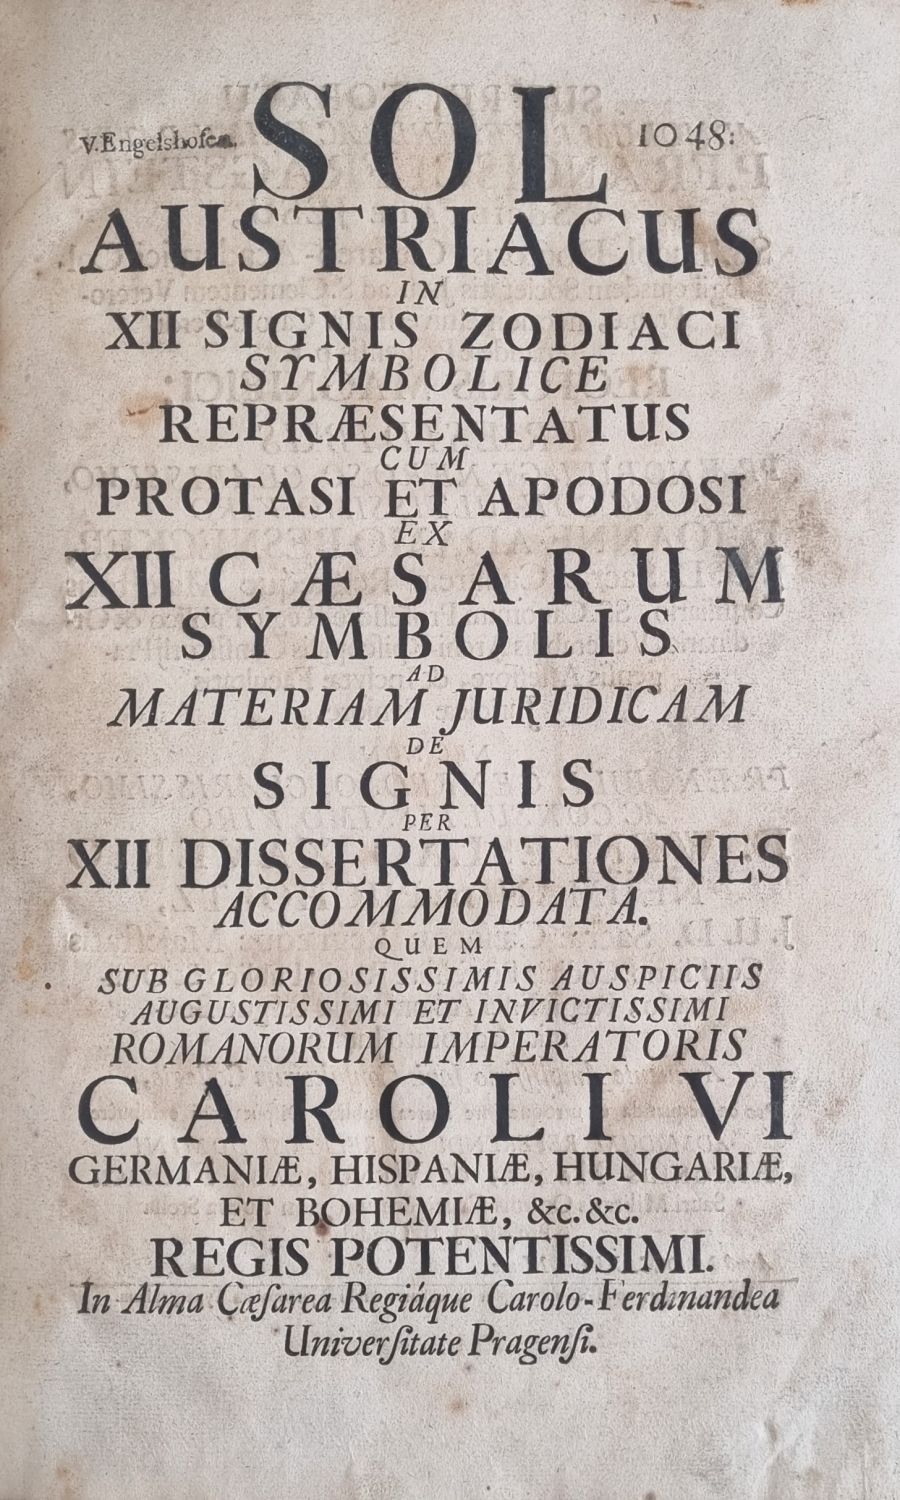 V. Engelshofen.
1048:
SOL
AUSTRIACUS
IN
XII SIGNIS ZODIACI
SYMBOLICE
REPRÆSENTATUS
CUM
PROTASI ET APODOSI
EX
XII CÆSARUM
SYMBOLIS
AD
MATERIAM JURIDICAM
DE
SIGNIS
PER
XII DISSERTATIONES
ACCOMMODATA.
QUEM
SUB GLORIOSISSIMIS AUSPICIIS
AUGUSTISSIMI ET INVICTISSIMI
ROMANORUM IMPERATORIS
CAROLI VI
GERMANIÆ, HISPANIÆ, HUNGARIÆ,
ET BOHEMIÆ, &c. &c.
REGIS POTENTISSIMI.
In Alma Cæſarea Regiáque Carolo-Ferdinandea
Univerſitate Pragenſi.